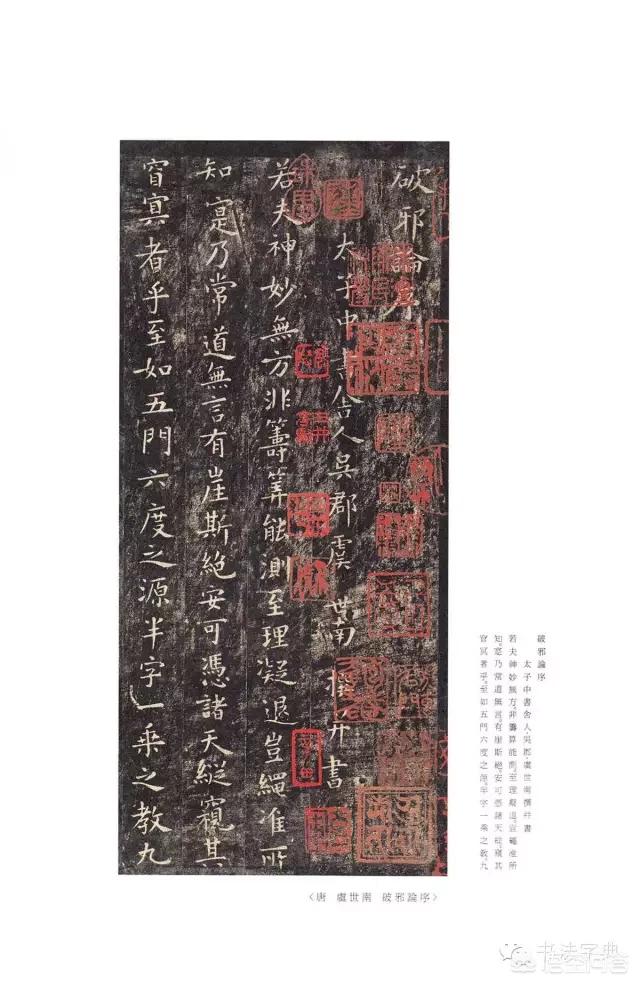 破邪論序
太子中書舍人吳郡虞世南撰并書
若夫神妙無方非籌筭能測至理凝退豈繩准所
知寔乃常道無言有崖斯絕安可憑諸天縱窺其
窅冥者乎至如五門六度之源半字一乘之教九
破邪論序
太子中書舍人吳郡虞世南撰并書
若夫神妙無方。非籌算能測。至理凝退。豈繩准所
知。寔乃常道無言。有崖斯絕。安可憑諸天縱。窺其
窅冥者乎。至如五門六度之源。半字一乘之教。九
〈唐 虞世南 破邪論序〉
书法字典
悟空问答